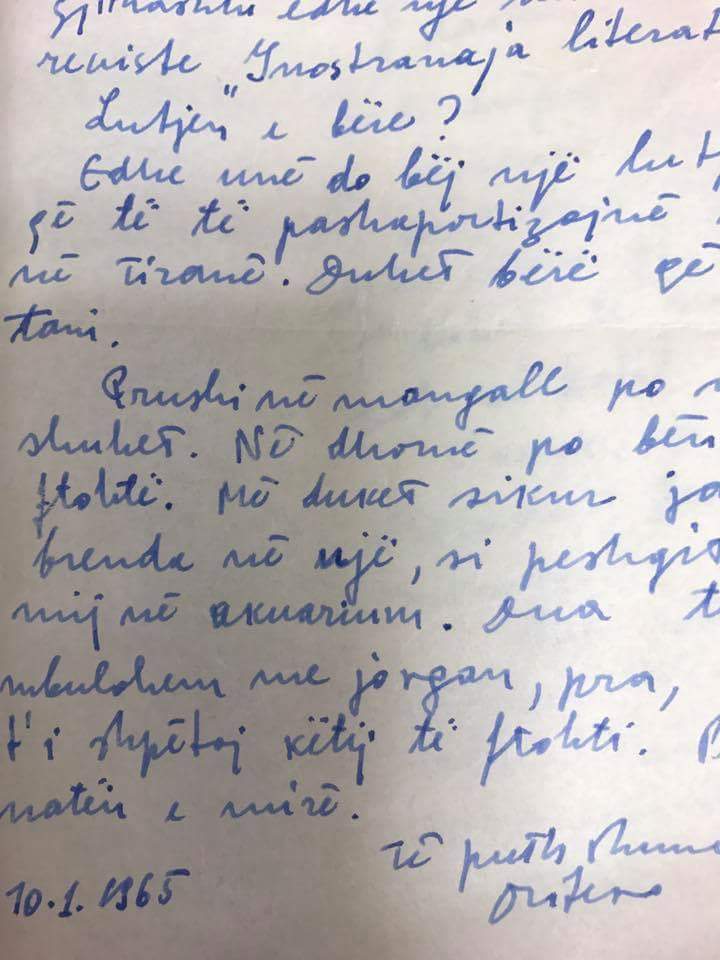 gjithashtu edhe një
reviste "Inostranaja literat
Lutjen" e bëre?
Edhe unë do bëj një lut
që të të pashaportizojnë
në Tiranë. Duhet bërë që
tani.
Prushi në mangall po
shuhet. Në dhomë po bën
ftohtë. Më duket sikur ja
brenda në një, si peshqit
mij në akuarium. Dua t
mbulohem me jorgan, pra,
t'i shpëtoj këtij të ftohti. 
natën e mirë.
Të puth shumë
10.1.1965